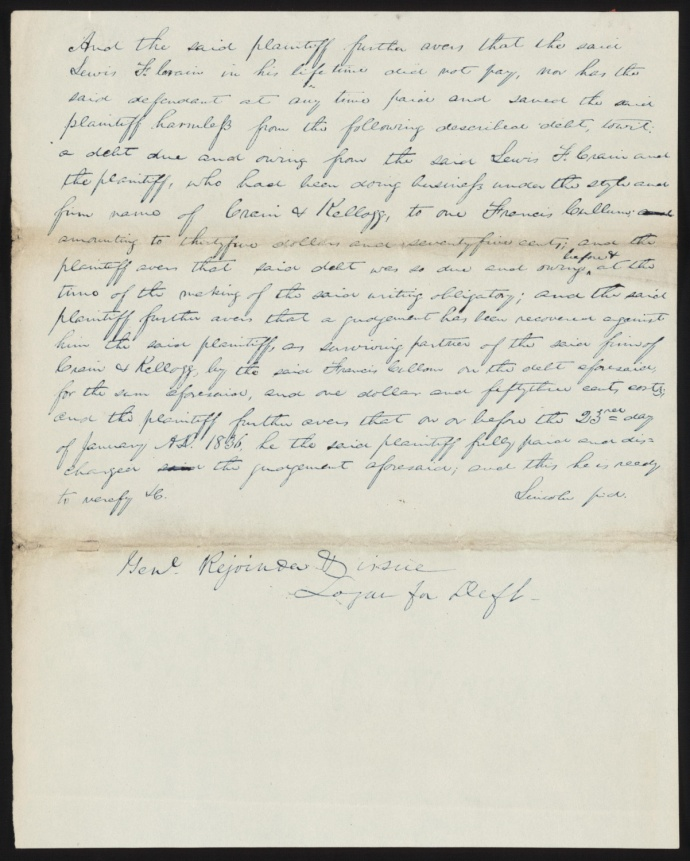 And the said plaintiff further avers that the said
Lewis F. Crain in his lifetime did not pay, nor has the
said defendant at any time paid and saved the said
plaintiff harmless from the following described debt, towit:
a debt due and owing from the said Lewis F. Crain and
the plaintiff, who had been doing business under the style and
firm name of Crain & Kellogg, to one Francis Cullum and
amounting to thirtyfive dollars and seventyfive cents; and the
plaintiff avers that said debt was so due and owing, before & at the
time of the making of the said writing obligatory; and the said
plaintiff further avers that a judgement has been recovered against
him the said plaintiff, as surviving partner of the said firm of
Crain & Kellogg, by the said Francis Cullom on the debt aforesaid,
for the sum aforesaid, and one dollar and fiftythree cents costs;
and the plaintiff further avers that on or before the 23rd day
of January A.D. 1836, he the said plaintiff fully paid and dis=
charged said the judgement aforesaid; and this he is ready
to verefy &c. Lincoln p.d.
Genl. Rejoinder & issue
Logan for Deft-